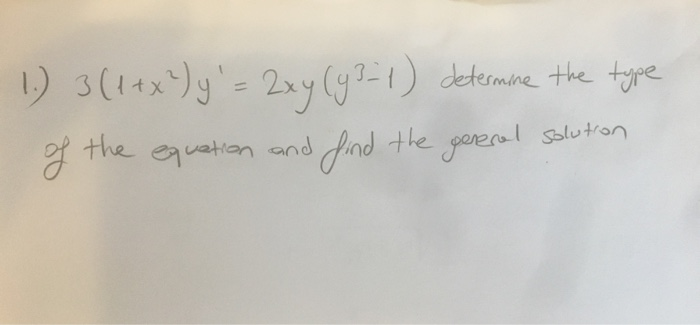 1.) 3(1+x²)y' = 2xy(y³-1) determine the type
of the equation and find the general solution